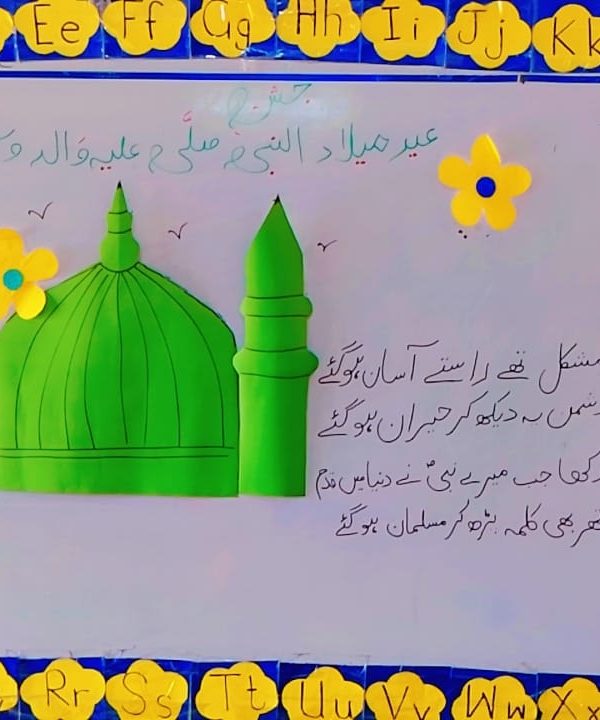 Ee Ff Gg Hh Ii Jj Kk
جشنِ
عید میلاد النبیﷺ صلَّی علیہ وَالہ و
مشکل تھے راستے آسان ہوگئے
دشمن یہ دیکھ کر حیران ہوگئے
رکھا جب میرے نبیؐ نے دنیا میں قدم
پتھر بھی کلمہ پڑھ کر مسلمان ہوگئے
Rr Ss Tt Uu Vv Ww Xx